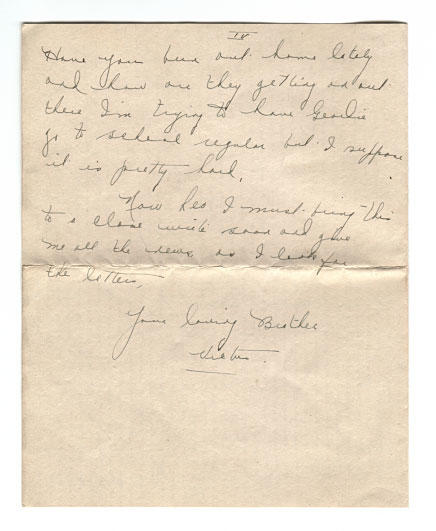 IV
Have you been out home lately
and how are they getting on out
there I'm trying to have Geordie
go to school regular but I suppose
it is pretty hard.
Now I must bring this
to a close write soon and give
me all the news as I look for
the letters,
Your loving Brother